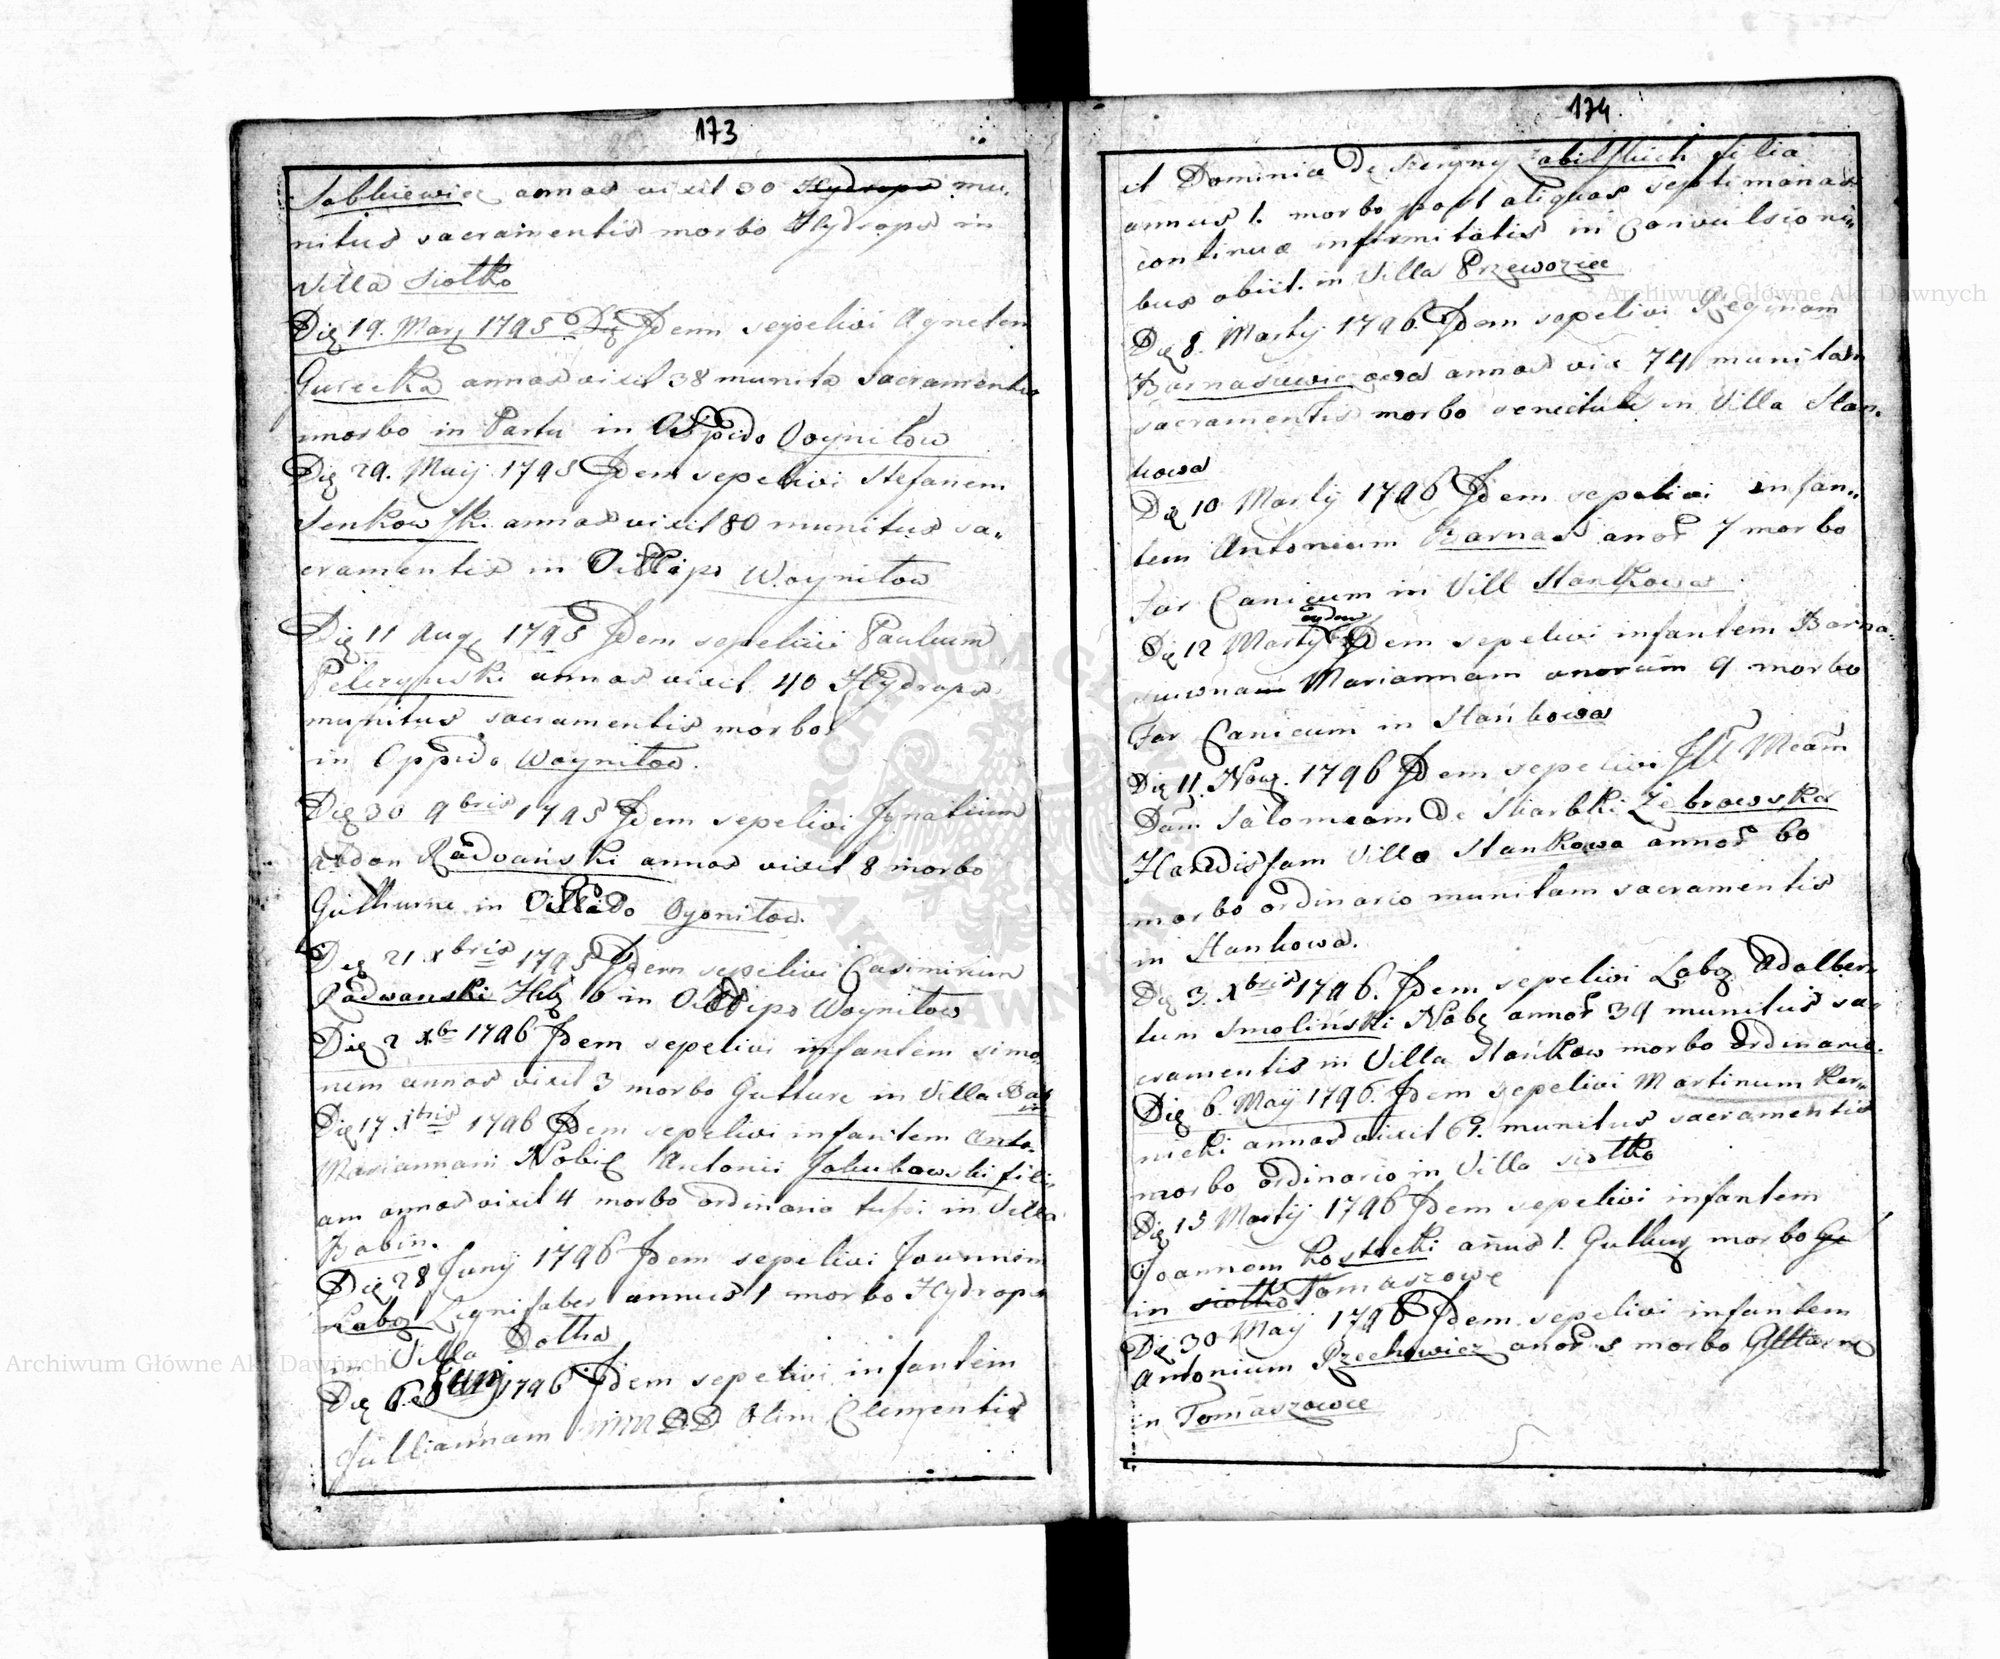 173
Sobkiewicz annos vixit 30 Hydrope mu-
nitus sacramentis morbo Hydrops in
Villa Siołko
Die 19. Marz 1795 Die Idem sepelivi Agnetem
Gurecka annos vixit 38 munita Sacramentis
morbo in Partu in Oppido Woynilow
Die 29. Maij 1795 Idem sepelivi Stefanem
Senkowski annos vixit 80 munitus sa-
cramentis in Oppido Woynilow
Die 11 Aug 1795 Idem sepelivi Paulum
Peliczynski annos vixit 40 Hydrops
munitus sacramentis morbo
in Oppido Woynilow.
Die 30 9bris 1795 Idem sepelivi Ignatium
Abdon Radwański annos vixit 8 morbo
Gutturne in Oppido Oyonilow.
Die 21 Xbris 1795 Idem sepelivi Casimirum
Radwanski 6 in Oppido Woynilow
Die 2 Xb 1796 Idem sepelivi infantem Simo
nem annos vixit 3 morbo Gutture in Villa Bab
in
Die 17 Xbris 1796 Idem sepelivi infantem Anto
Mariannam Nobil Antonii Jakubowski fili-
am annos vixit 4 morbo ordinario tussi in Villa
Babin.
Die 28 Juny 1796 Idem sepelivi Joannem
Labo Lignifaber annus 1 morbo Hydrops
in Villa Dołha
Die 6 Juny 1796 Idem sepelivi infantem
Julliannam DD Olim Clementis
174
et Dominica De filia
annus 1. morbo post aliquas septimanas
continuae infirmitatis in Convulsioni-
bus obiit. in Villa Przewoziec
Die 8. Martij 1796 Idem sepelivi Reginam
Barnasiewiczowa annos vix 74 munitam
sacramentis morbo senectute in Villa Stan-
kowa
Die 10 Martij 1796 Idem sepelivi infan-
tem Antonium Barnas anor 7 morbo
For Canicum in Vill Stankowa
eodem
Die 12 Martij Idem sepelivi infantem Barna-
siuwnam Mariannam anorum 9 morbo
For Canicum in Stańkowa
Die 11. Nov. 1796 Idem sepelivi Mcam
Dam Salomeam De Skarbki Żebrowska
Haredissam Villa Stankowa annor 60
morbo ordinario munitam sacramentis
in Stankowa.
Die 3. Xbris 1796. Idem sepelivi Labo Adalber-
tum Smoliński Nobl annor 39 munitus sa-
cramentis in Villa Stańkow morbo ordinario.
Die 6. Maij 1796. Idem sepelivi Martinum Ker-
nicki annos vixit 61. munitus sacramentis
morbo ordinario in Villa Siołko
Die 15 Martij 1796 Idem sepelivi infantem
Joannem Kostecki anus 1. Guttur morbo Gu
in Siołko Tomaszowe
Die 30 Maij 1796 Idem sepelivi infantem
Antonium Rzechowicz anor 5 morbo Gutture
in Tomaszowce
Archiwum Główne Akt Dawnych
Archiwum Główne Akt Dawnych